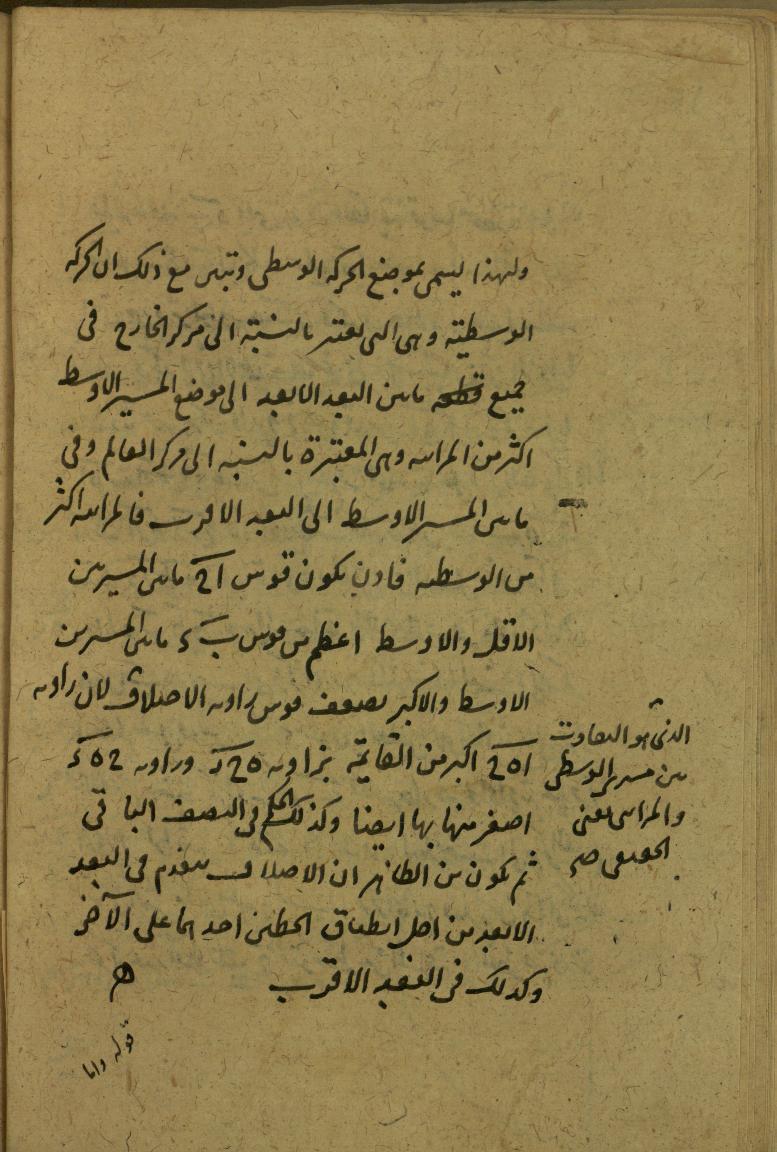 ولهذا يسمى بموضع الحركه الوسطى وتبين مع ذلك ان الحركه
الوسطيته وهى التى تعتبر بالنسبته الى مركز الخارج فى
جميع مابين البعد الابعد الى موضع المسير الاوسط
اكثر من المرائيه وهى المعتبرة بالنسبه الى مركز العالم وفى
مابين المسير الاوسط الى البعد الاقرب فالمرائيه اكثر
من الوسطيه فاذن يكون قوس اح مابين المسيرين
الاقل والاوسط اعظم من قوس ب د مابين المسيرين
الاوسط والاكبر بضعف قوس زاويه الاختلاف لان زاويه
اه ح اكبر من القايمه بزاويه وزاويه ح ه د
اصغر منها بها ايضا وكذلك الحكم فى النصف الباقى
ثم يكون من الظاهر ان الاختلاف ينعدم فى البعد
الابعد من اجل انطباق الخطين احدهما على الآخر
وكذلك فى البعد الاقرب
الذى هو التفاوت
بين مسيرى الوسطى
والمرائى يعنى
الحقيقى صح
قوله واما